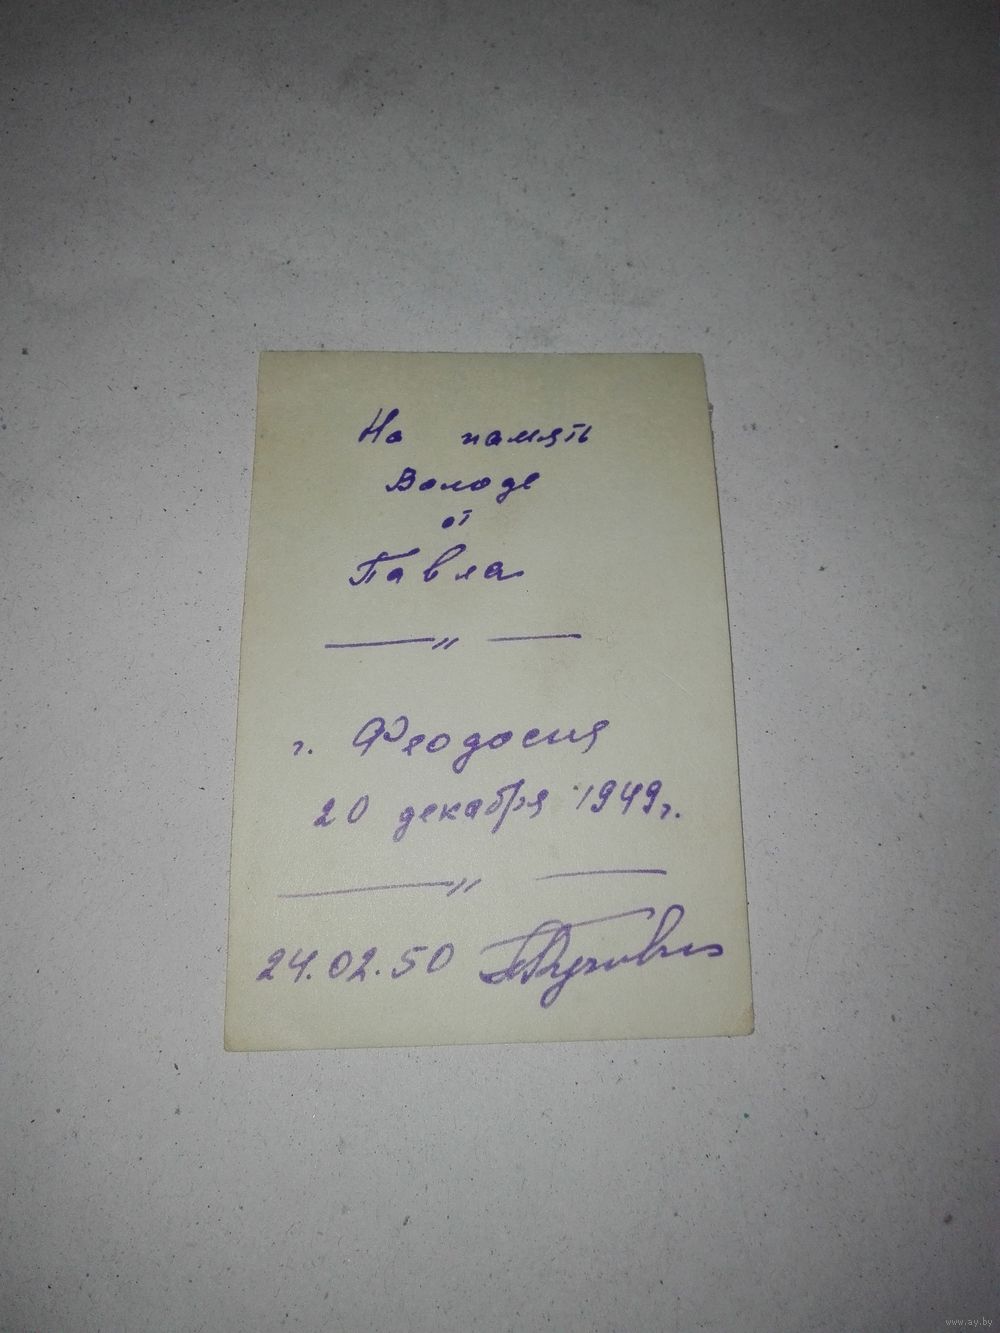 На память
Володе
от
Павла
—— „ ——
г. Феодосия
20 декабря 1949г.
—— „ ——
24.02.50
www.ay.by